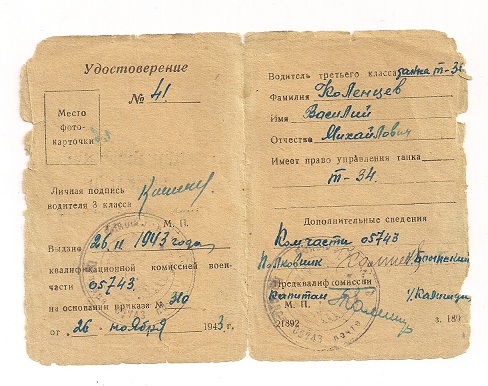 Удостоверение
№ 41
Место
фото-
карточки
Личная подпись
водителя 3 класса
М. П.
Выдано 26 11 1943 года
квалификационной комиссией воен-
части 05743
на основании приказа № 310
от 26 ноября 1943 г.
Водитель третьего класса танка Т-34
Фамилия Коленцев
Имя Василий
Отчество Михайлович
Имеет право управления танка
Т-34.
Дополнительные сведения
Ком.части 05743
Полковник
Предквалифкомиссии
Капитан
М. П.
21892 з. 189